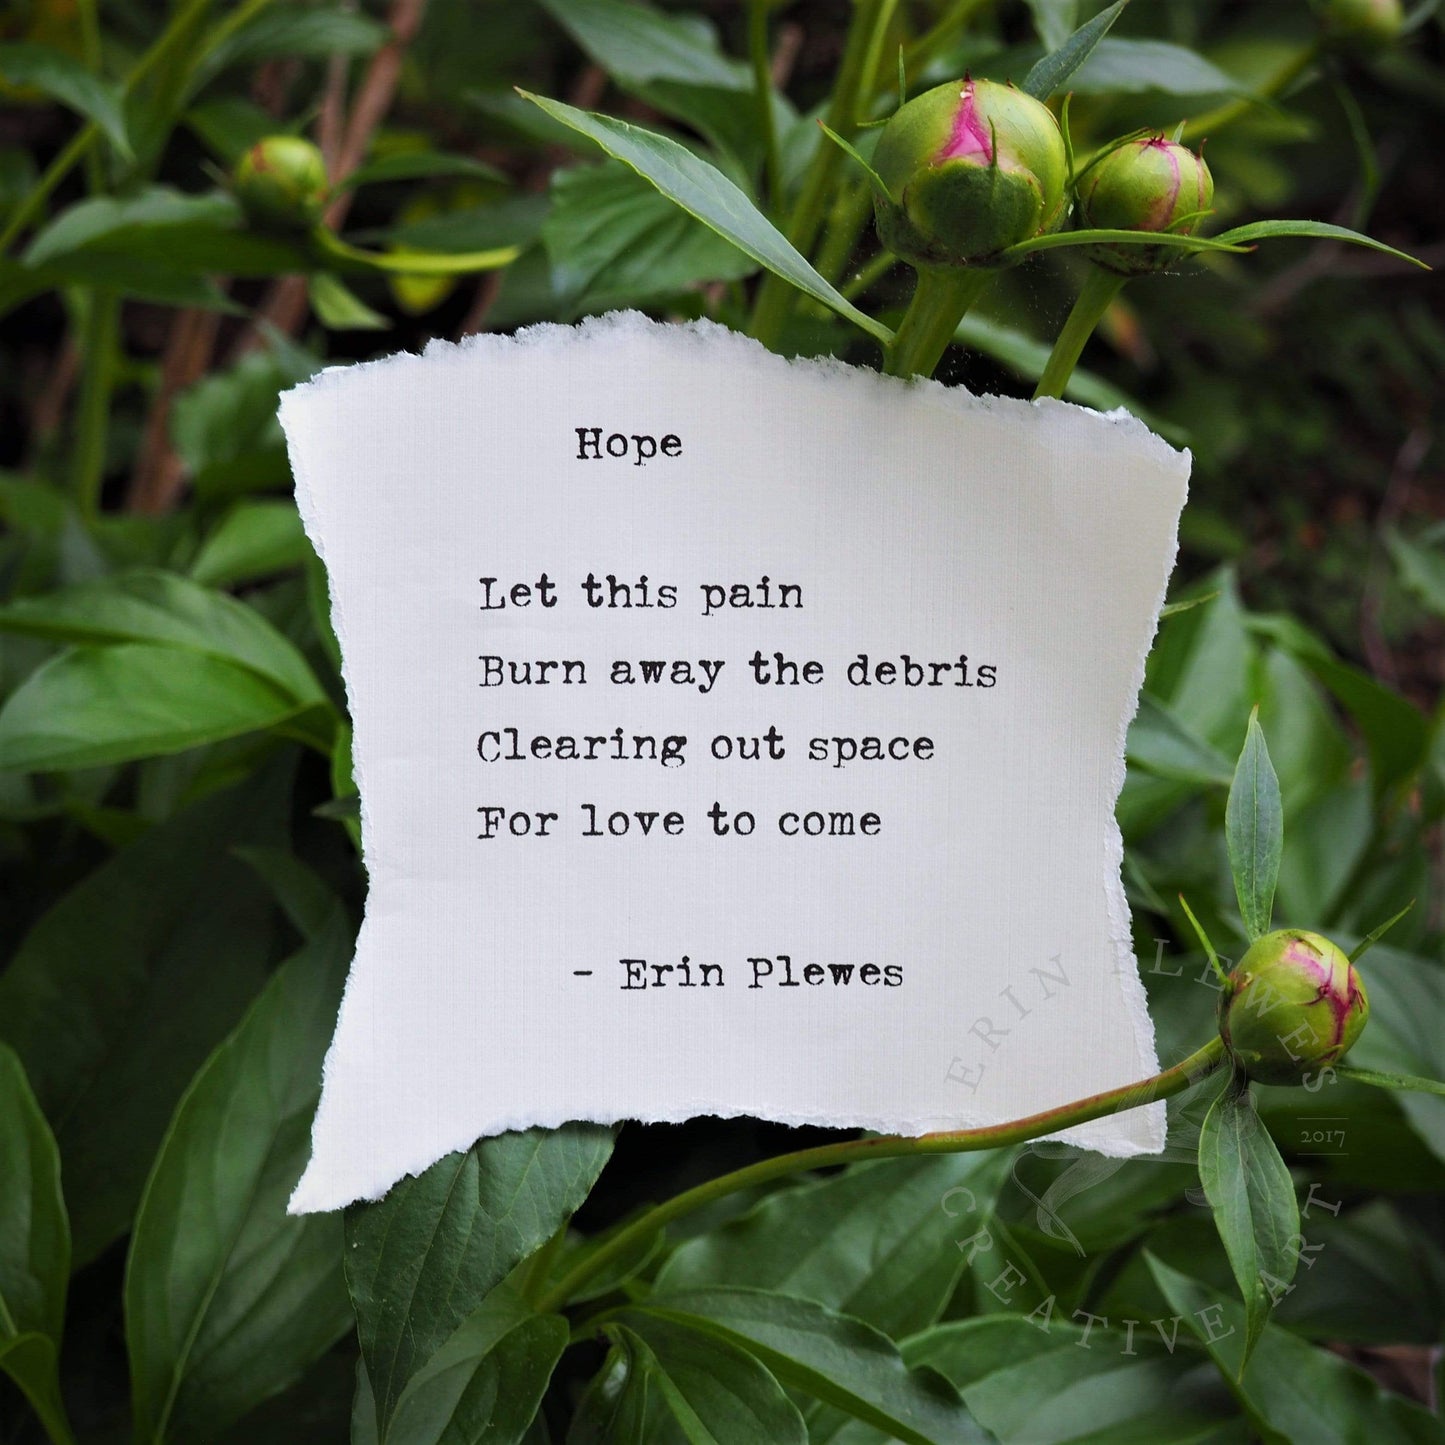 Hope
Let this pain
Burn away the debris
Clearing out space
For love to come
- Erin Plewes
ERIN PLEWES
2017
CREATIVE ART